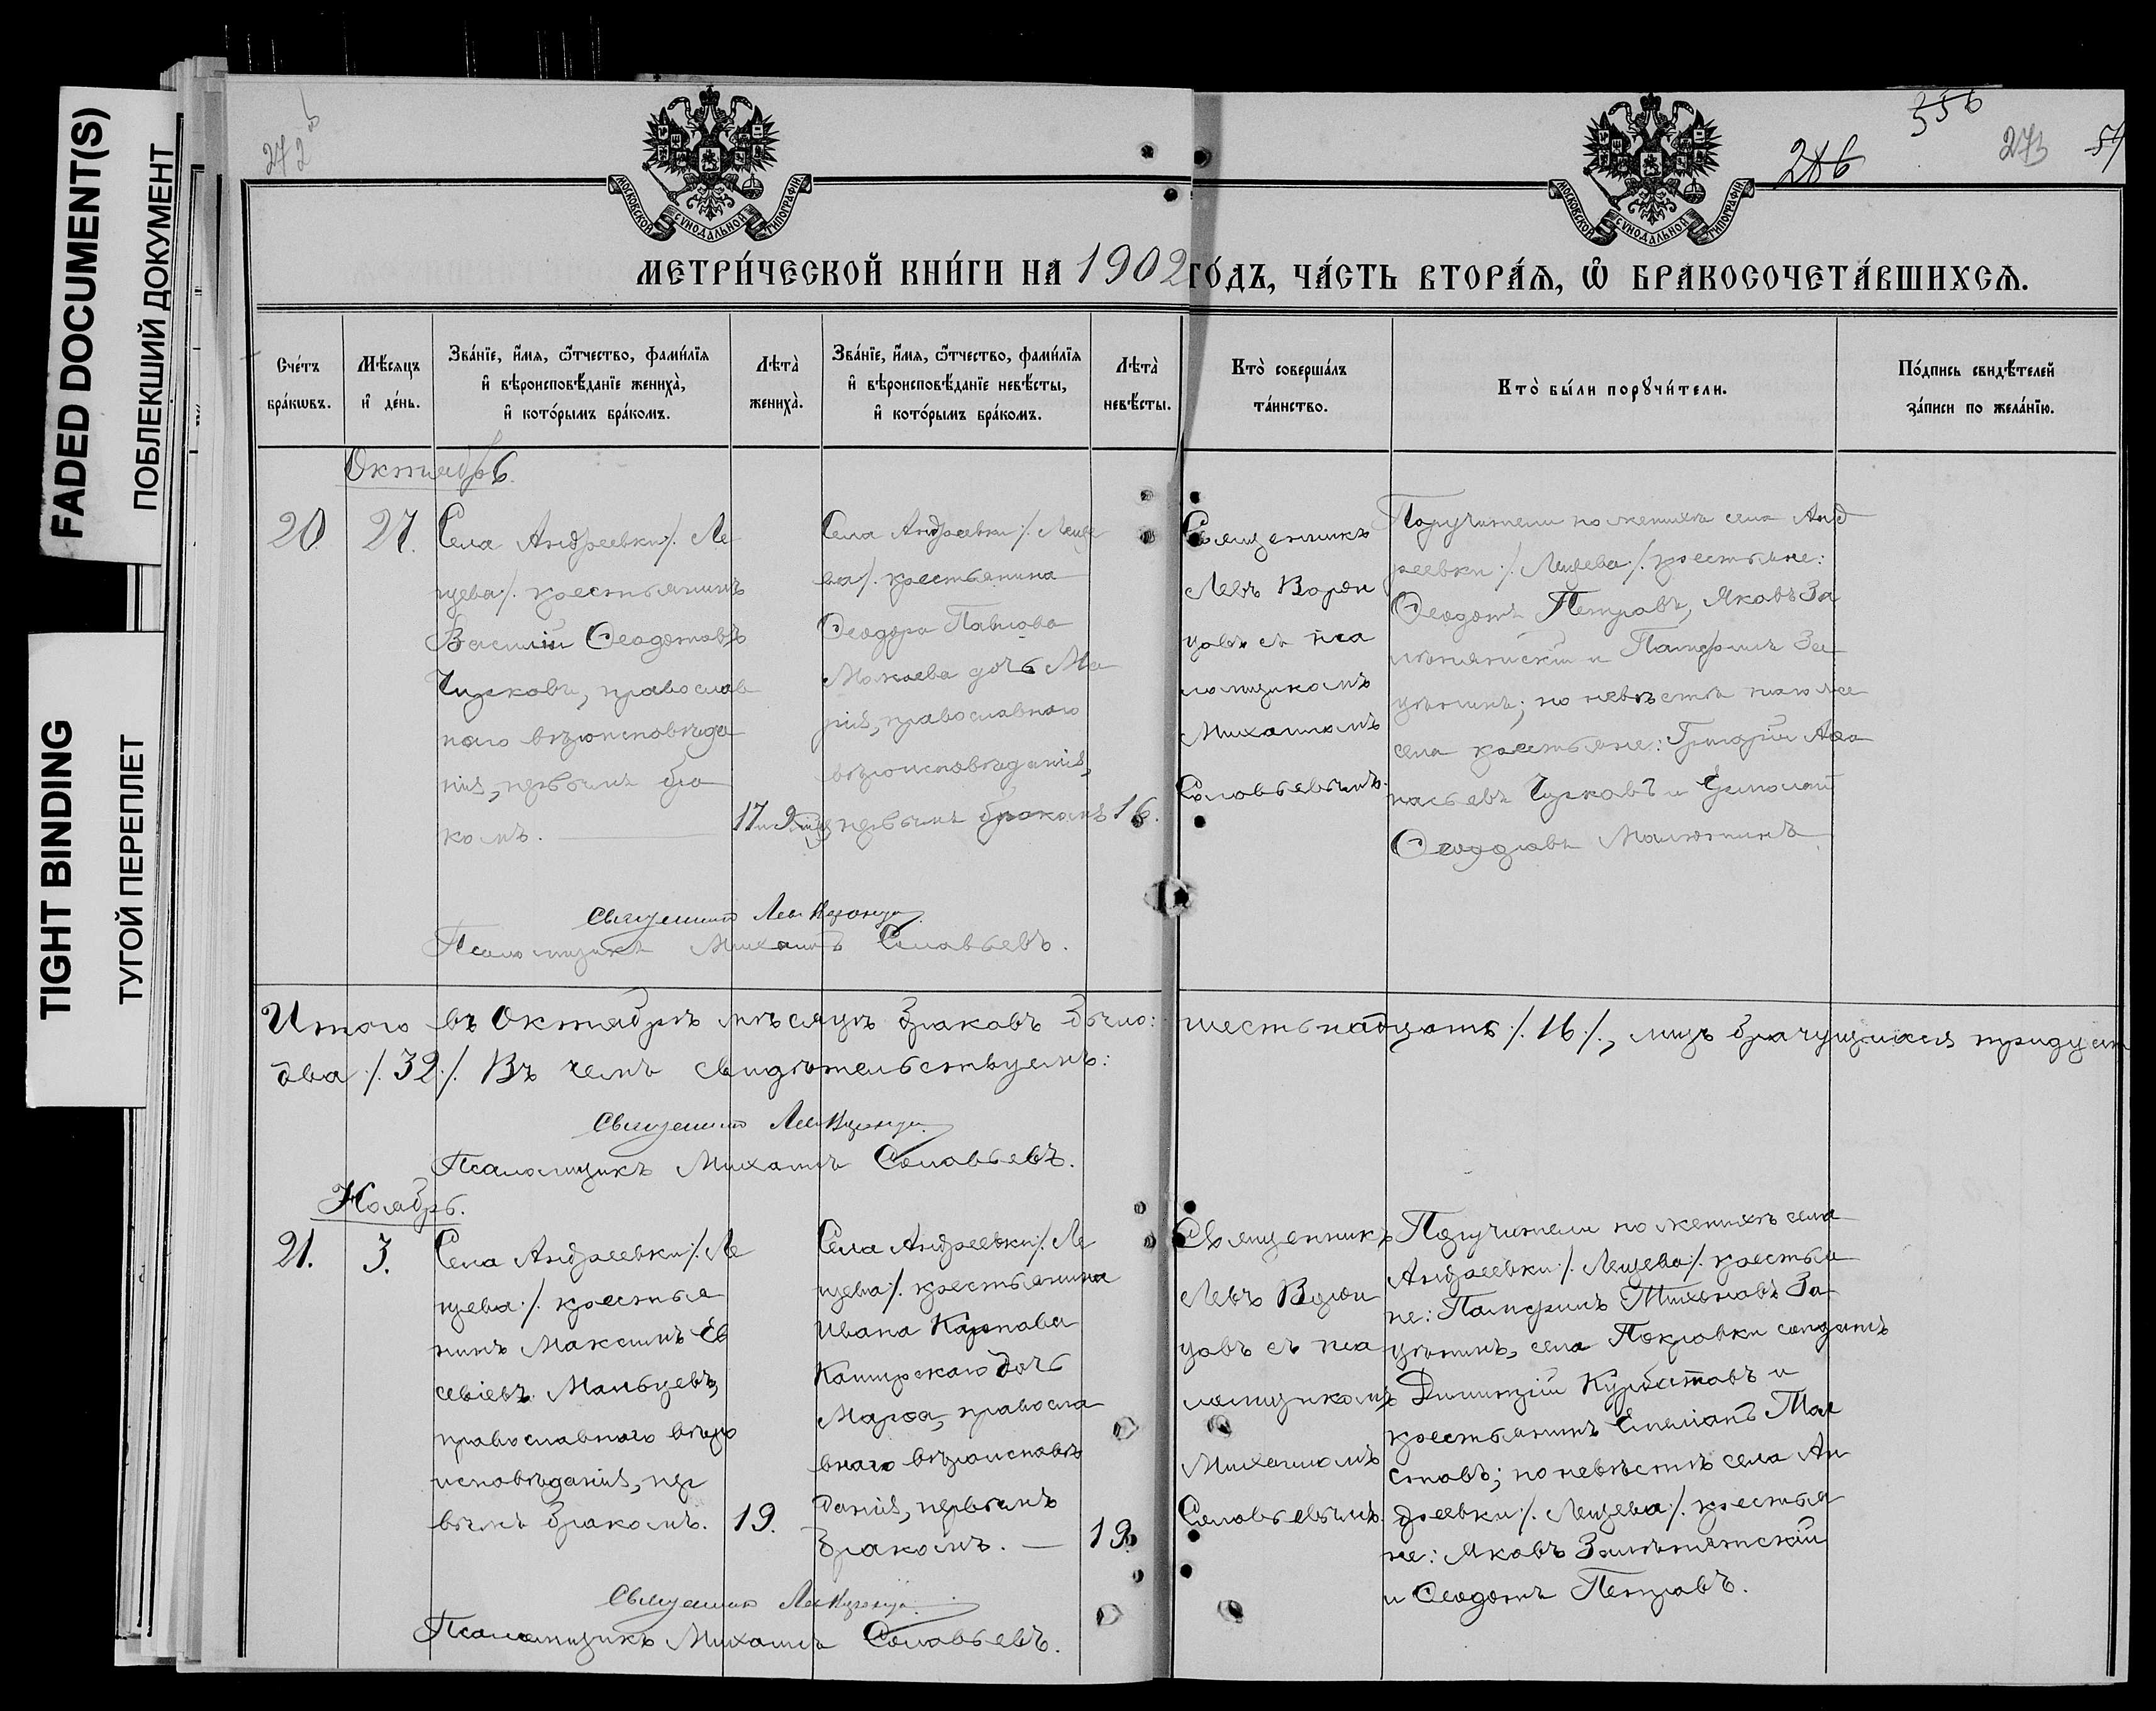 FADED DOCUMENT(S)
ПОБЛЕКШИЙ ДОКУМЕНТ
TIGHT BINDING
ТУГОЙ ПЕРЕПЛЕТ
272 об
286
356
273
МОСКОВСКОЙ СѴНОДАЛЬНОЙ ТИПОГРАФІИ.
МОСКОВСКОЙ СѴНОДАЛЬНОЙ ТИПОГРАФІИ.
МЕТРИ́ЧЕСКОЙ КНИ́ГИ НА 1902 ГО́ДЪ, ЧА́СТЬ ВТОРА́Ѧ, Ѽ БРАКОСОЧЕТА́ВШИХСѦ.
Сче́тъ
бра́кѡвъ.
Мѣ́сяцъ
и҆ де́нь.
Зва́нїе, и҆́мя, ѻ҆́тчество, фами́лїя
и҆ вѣроисповѣ́данїе жениха̀,
и҆ кото́рымъ бра́комъ.
Лѣта̀
жениха̀.
Зва́нїе, и҆́мя, ѻ҆́тчество, фами́лїя
и҆ вѣроисповѣ́данїе невѣ́сты,
и҆ кото́рымъ бра́комъ.
Лѣта̀
невѣ́сты.
Кто̀ соверша́лъ
та́инство.
Кто̀ бы́ли порꙋчи́тели.
По́дпись свидѣ́телей
за́писи по жела́нїю.
Октябрь
20.
27.
Села Андреевки /. Ле
щева /. крестьянинъ
Василій Ѳеодотовъ
Чурковъ, православ
наго вѣроисповѣда
нія, первымъ бра
комъ.
17 и 9
Села Андреевки /. Леще
ва /. крестьянина
Ѳеодора Павлова
Мокаева дочь Ма
рія, православнаго
вѣроисповѣданія,
первымъ бракомъ
16.
Священникъ
Левъ Ворон
цовъ съ пса
ломщикомъ
Михаиломъ
Соловьевымъ.
Поручители по женихѣ села Анд
реевки /. Лещева /. крестьяне:
Ѳеодотъ Петровъ, Яковъ За
мѣтнянскій и Памфилъ За
цѣпинъ; по невѣстѣ того же
села крестьяне: Григорій Аѳа
насьевъ Чурковъ и Ермолай
Ѳеодоровъ Малютинъ.
Священникъ Левъ Воронцо
Псаломщикъ Михаилъ Соловьевъ.
Итого въ Октябрѣ мѣсяцѣ браковъ было: шестьнадцать /. 16 /., лицъ брачущихся тридцать
два /. 32 /. Въ чемъ свидѣтельствуемъ:
Священникъ Левъ Воронцо
Псаломщикъ Михаилъ Соловьевъ.
Ноябрь.
21.
3.
Села Андреевки /. Ле
щева /. крестья
нинъ Максимъ Ев
севіевъ Мальцевъ,
православнаго вѣро
исповѣданія, пер
вымъ бракомъ.
19.
Села Андреевки /. Ле
щева /. крестьянина
Ивана Карпова
Каширскаго дочь
Марѳа, правосла
внаго вѣроисповѣ
данія, первымъ
бракомъ.
19.
Священникъ
Левъ Ворон
цовъ съ пса
ломщикомъ
Михаиломъ
Соловьевымъ.
Поручители по женихѣ села
Андреевки /. Лещева /. крестья
не: Памфилъ Тихоновъ За
цѣпинъ, села Покровки солдатъ
Димитрій Курбатовъ и
крестьянинъ Емеліанъ Тол
стовъ; по невѣстѣ села Ан
дреевки /. Лещева /. крестья
не: Яковъ Замѣтнянскій
и Ѳеодотъ Петровъ.
Священникъ Левъ Воронцо
Псаломщикъ Михаилъ Соловьевъ.